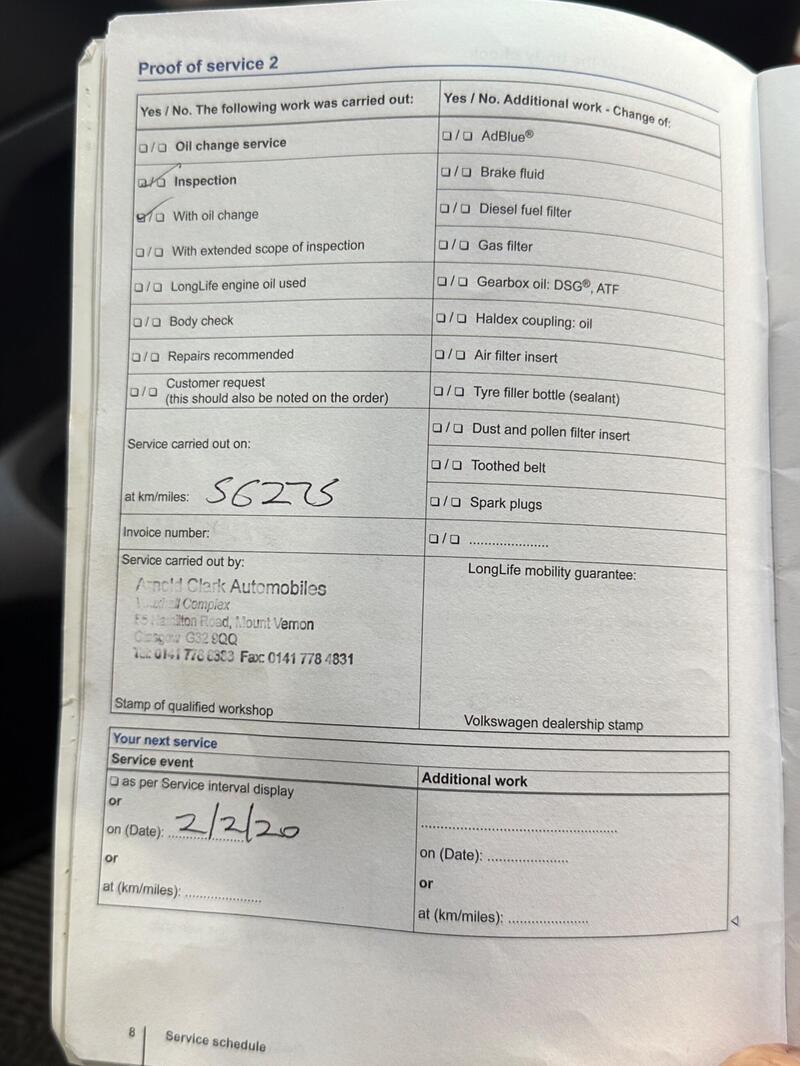 Proof of service 2
Yes / No. The following work was carried out:
❏ / ❏ Oil change service
❏ / ❏ Inspection
❏ / ❏ With oil change
❏ / ❏ With extended scope of inspection
❏ / ❏ LongLife engine oil used
❏ / ❏ Body check
❏ / ❏ Repairs recommended
❏ / ❏ Customer request
(this should also be noted on the order)
Service carried out on:
at km/miles: 56275
Invoice number:
Service carried out by:
Arnold Clark Automobiles
Complex
Road, Mount Vernon
Glasgow G32 9QQ
Tel: 0141 778 Fax: 0141 778 4831
Stamp of qualified workshop
Yes / No. Additional work - Change of:
❏ / ❏ AdBlue®
❏ / ❏ Brake fluid
❏ / ❏ Diesel fuel filter
❏ / ❏ Gas filter
❏ / ❏ Gearbox oil: DSG®, ATF
❏ / ❏ Haldex coupling: oil
❏ / ❏ Air filter insert
❏ / ❏ Tyre filler bottle (sealant)
❏ / ❏ Dust and pollen filter insert
❏ / ❏ Toothed belt
❏ / ❏ Spark plugs
❏ / ❏ ......................
LongLife mobility guarantee:
Volkswagen dealership stamp
Your next service
Service event
❏ as per Service interval display
or
on (Date): 2/2/20
or
at (km/miles): .....................
Additional work
.......................................................
on (Date): ......................
or
at (km/miles): ......................
8
Service schedule